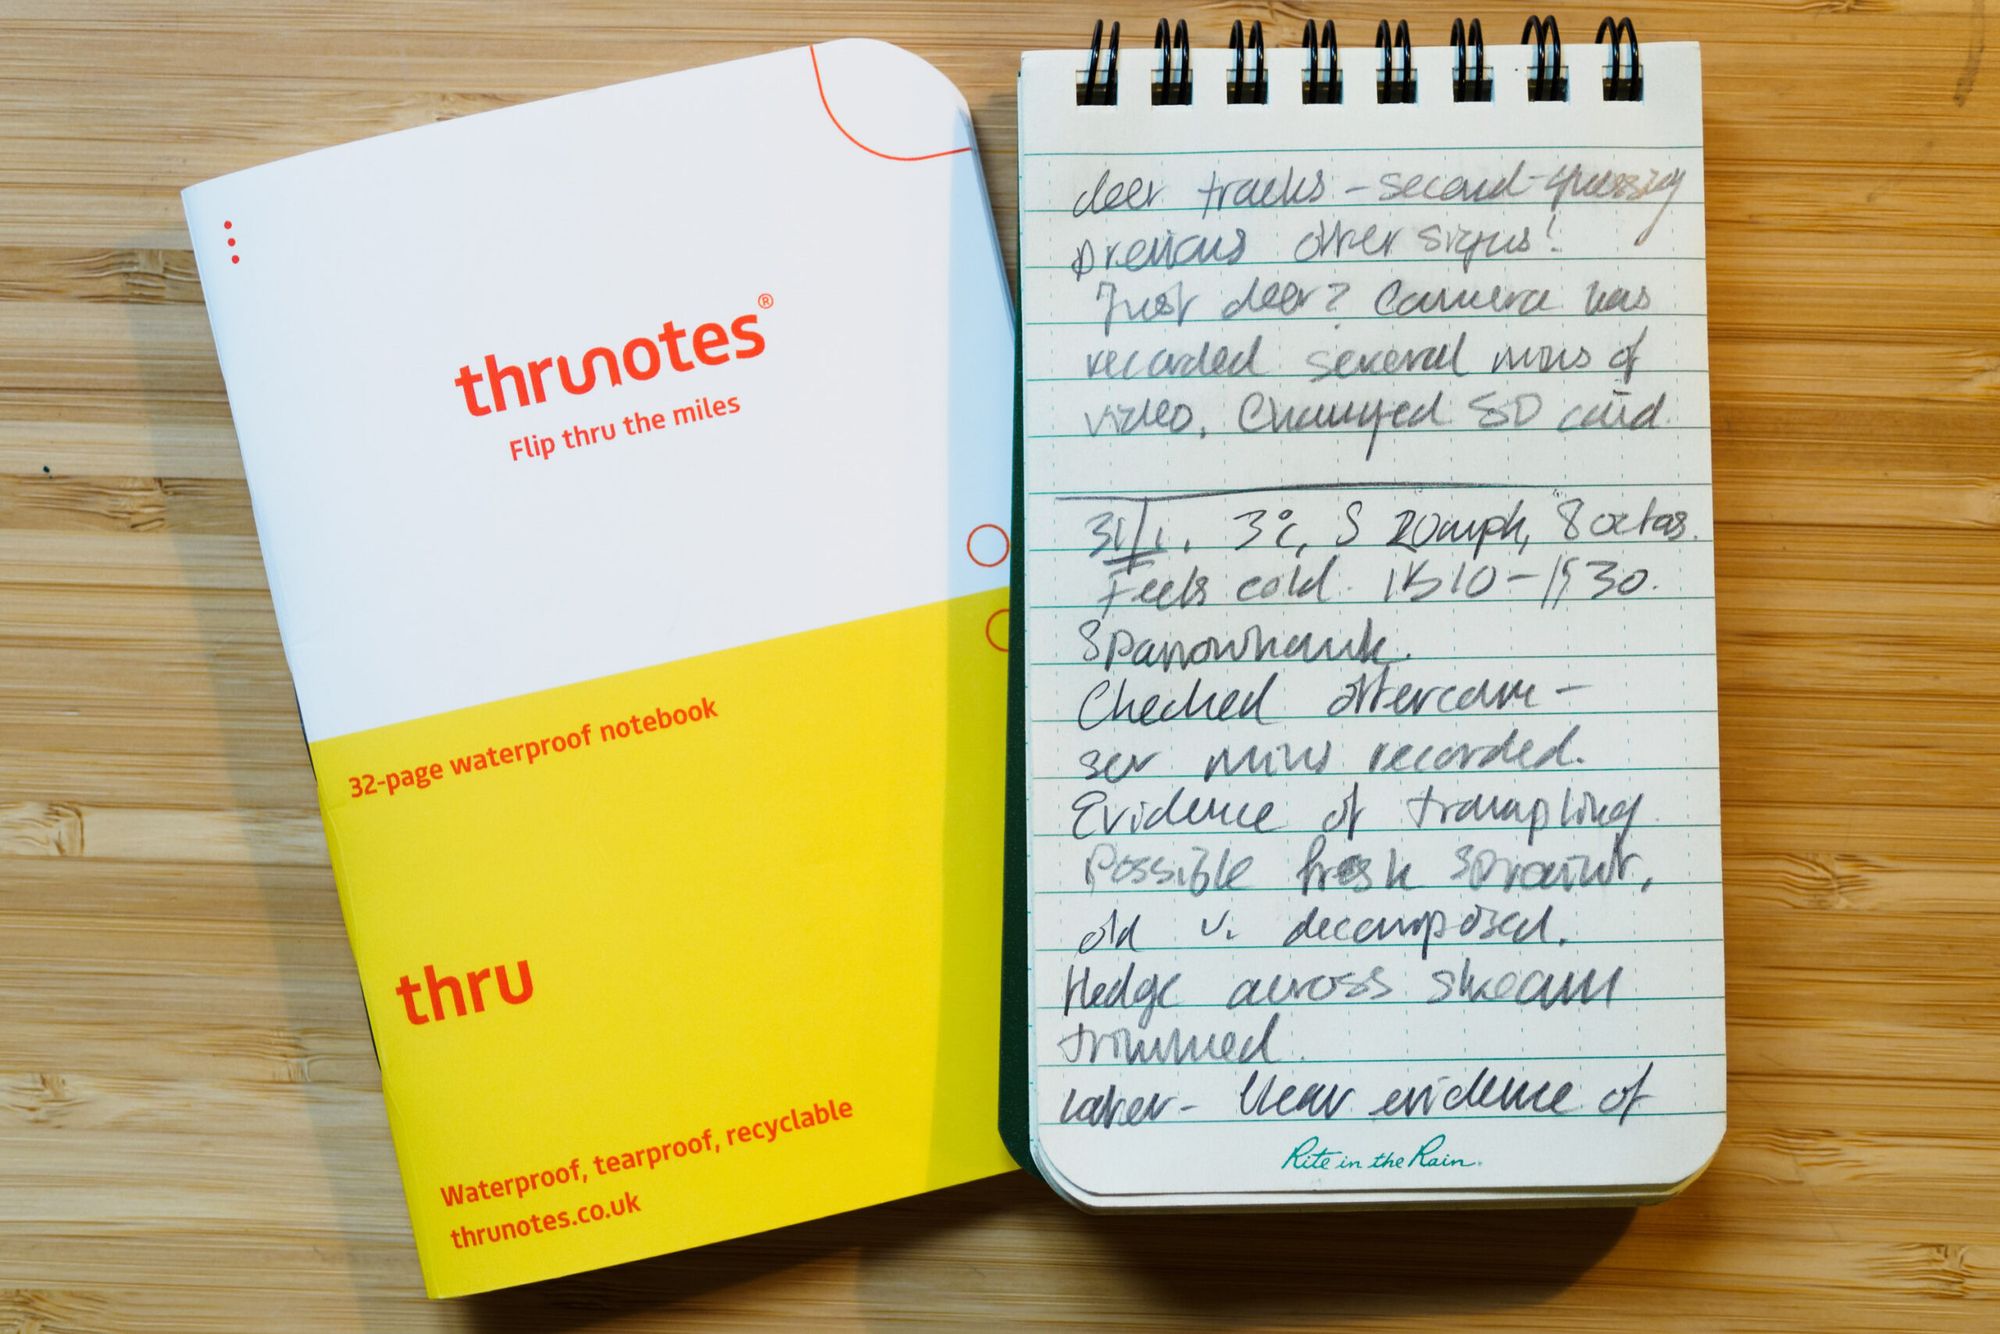 thrunotes®
Flip thru the miles
32-page waterproof notebook
thru
Waterproof, tearproof, recyclable
thrunotes.co.uk
deer tracks - second-guessing
previous otter signs!
Just deer? Camera has
recorded several mins of
video. Changed SD card.
31/1. 3°c, S 20mph, 8 octas.
Feels cold. 1510-1530.
Sparrowhawk.
Checked ottercam -
mins recorded.
Evidence of trampling.
Possible fresh spraint,
old v. decomposed.
Hedge across stream
trimmed.
Later - Clear evidence of
Rite in the Rain.